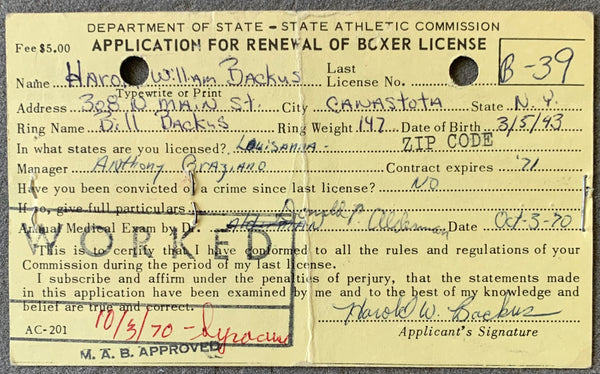 DEPARTMENT OF STATE - STATE ATHLETIC COMMISSION
Fee $5.00 APPLICATION FOR RENEWAL OF BOXER LICENSE
Name Harold William Backus Last License No. B-39
Typewrite or Print
Address 308 N. MAIN St. City CANASTOTA State N.Y.
Ring Name Bill Backus Ring Weight 147 Date of Birth 3/5/43
In what states are you licensed? Louisanna - ZIP CODE
Manager Anthony Graziano Contract expires '71
Have you been convicted of a crime since last license? NO
If so, give full particulars
Annual Medical Exam by Dr. Donald P. Alderman Date Oct-3-70
WORKED
This is to certify that I have conformed to all the rules and regulations of your
Commission during the period of my last license.
I subscribe and affirm under the penalties of perjury, that the statements made
in this application have been examined by me and to the best of my knowledge and
belief are true and correct.
Harold W. Backus
AC-201 10/3/70 - Syracuse Applicant's Signature
M. A. B. APPROVED